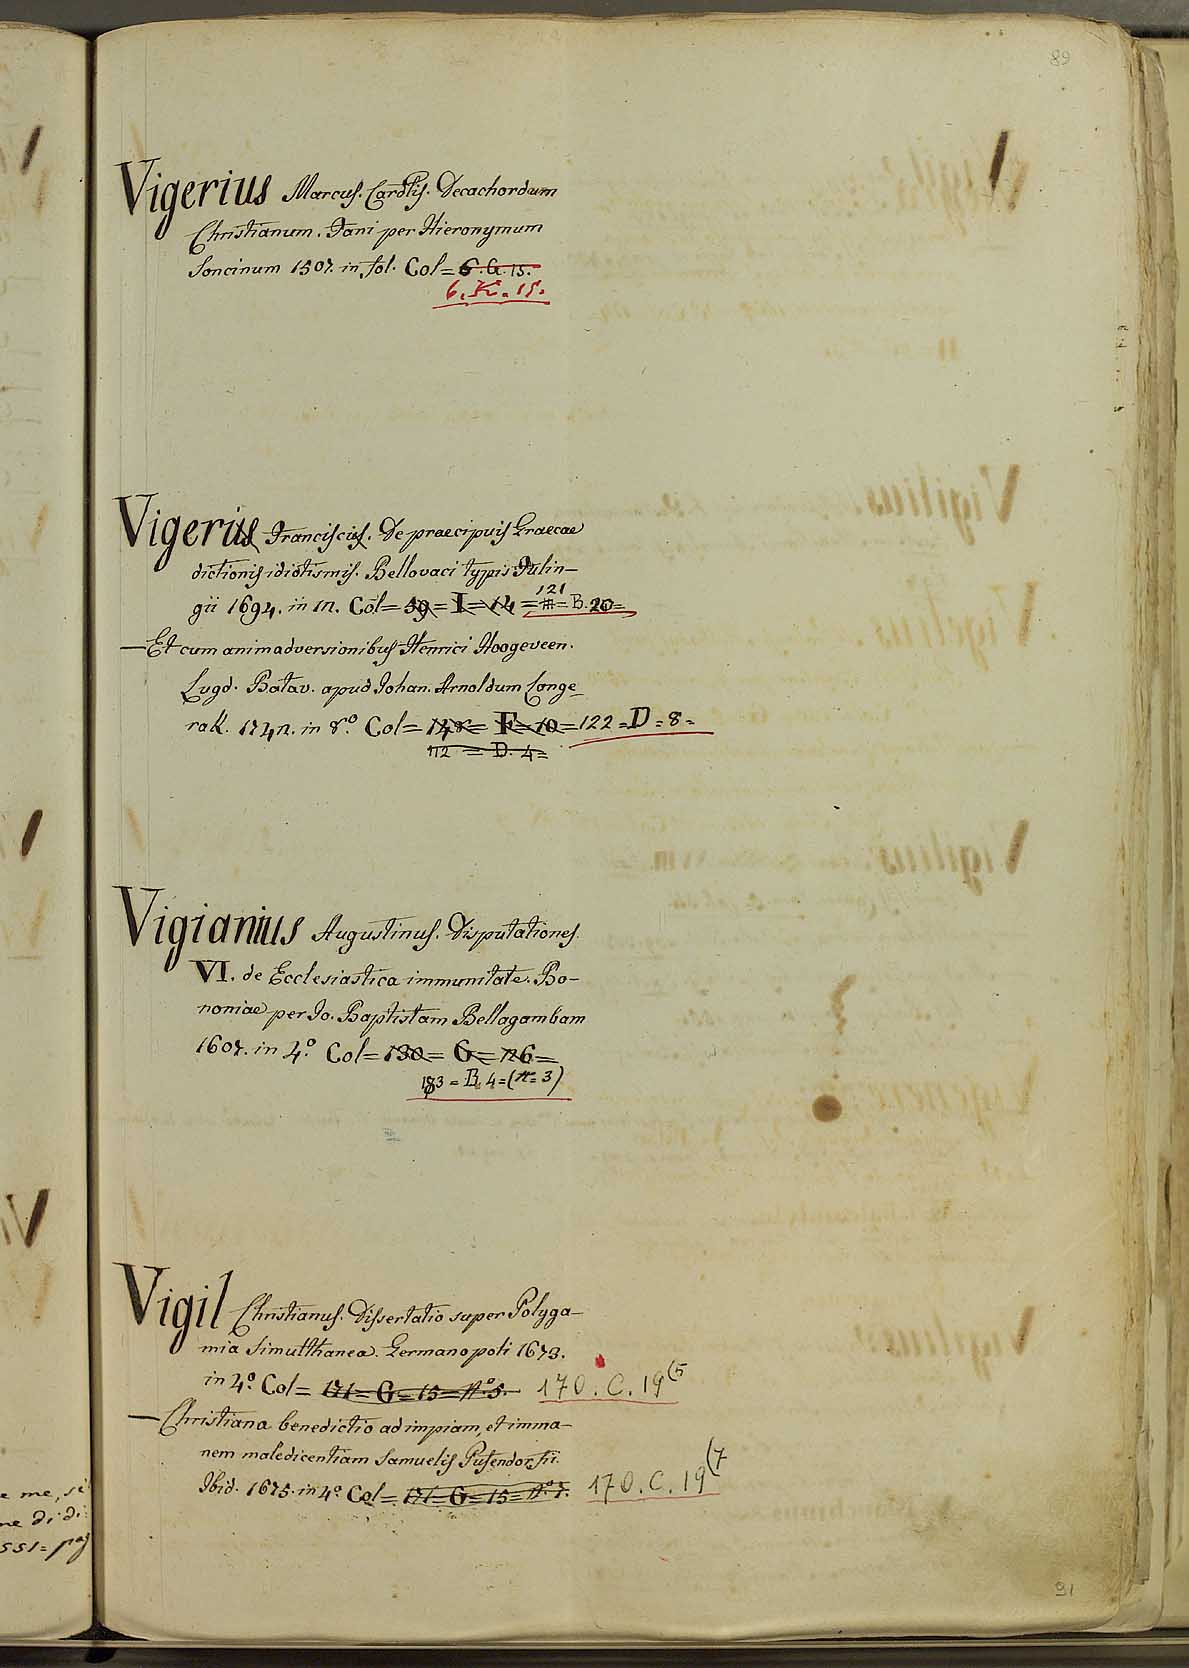 89
Vigerius Marcus. Cardlis. Decachordum
Christianum. Fani per Hieronymum
Soncinum 1507. in fol. Col= 6. G. 15.
6. K. 15.
Vigerius Franciscus. De praecipuis Graecae
dictionis idiotismis. Bellovaci typis Pulin-
121
gii 1694. in 12. Col= 59= I= 14= B. 20=
—Et cum animadversionibus Henrici Hoogeveen.
Lugd. Batav. apud Johan. Arnoldum Lange
rak. 1742. in 8.º Col= 148= F= 10= 122=D=8=
112 = D. 4=
Vigianius Augustinus. Disputationes
VI. de Ecclesiastica immunitate. Bo-
noniae per Jo. Baptistam Bellagambam
1607. in 4.º Col= 130= G= 126=
183= B. 4=(n=3)
Vigil Christianus. Dissertatio super Polyga-
mia Simulthanea. Germanopoli 1673.
in 4.º Col= 171= G=15=nº5. 170. C. 19(5
—Christiana benedictio ad impiam, et imma-
nem maledicentiam Samuelis Pufendorfii.
Ibid. 1675. in 4.º Col= 171= G=15=nº7. 170. C. 19(7
91